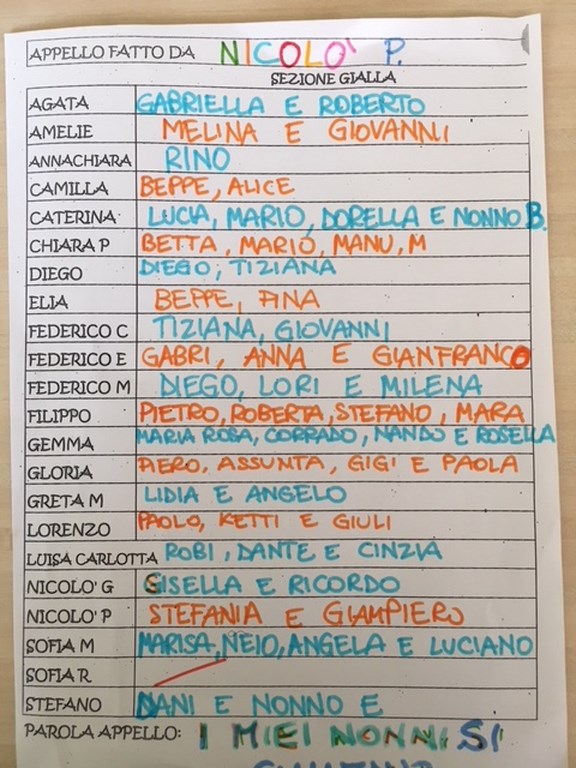 APPELLO FATTO DA NICOLO' P.
SEZIONE GIALLA
AGATA GABRIELLA E ROBERTO
AMELIE MELINA E GIOVANNI
ANNACHIARA RINO
CAMILLA BEPPE, ALICE
CATERINA LUCIA, MARIO, DORELLA E NONNO B.
CHIARA P BETTA, MARIO, MANU, M
DIEGO DIEGO, TIZIANA
ELIA BEPPE, PINA
FEDERICO C TIZIANA, GIOVANNI
FEDERICO E GABRI, ANNA E GIANFRANCO
FEDERICO M DIEGO, LORI E MILENA
FILIPPO PIETRO, ROBERTA, STEFANO, MARA
GEMMA MARIA ROSA, CORRADO, NANDO E ROSELLA
GLORIA PIERO, ASSUNTA, GIGI E PAOLA
GRETA M LIDIA E ANGELO
LORENZO PAOLO, KETTI E GIULI
LUISA CARLOTTA ROBI, DANTE E CINZIA
NICOLO' G GISELLA E RICORDO
NICOLO' P STEFANIA E GIAMPIERO
SOFIA M MARISA, NEIO, ANGELA E LUCIANO
SOFIA R
STEFANO DANI E NONNO E
PAROLA APPELLO: I MIEI NONNI SI